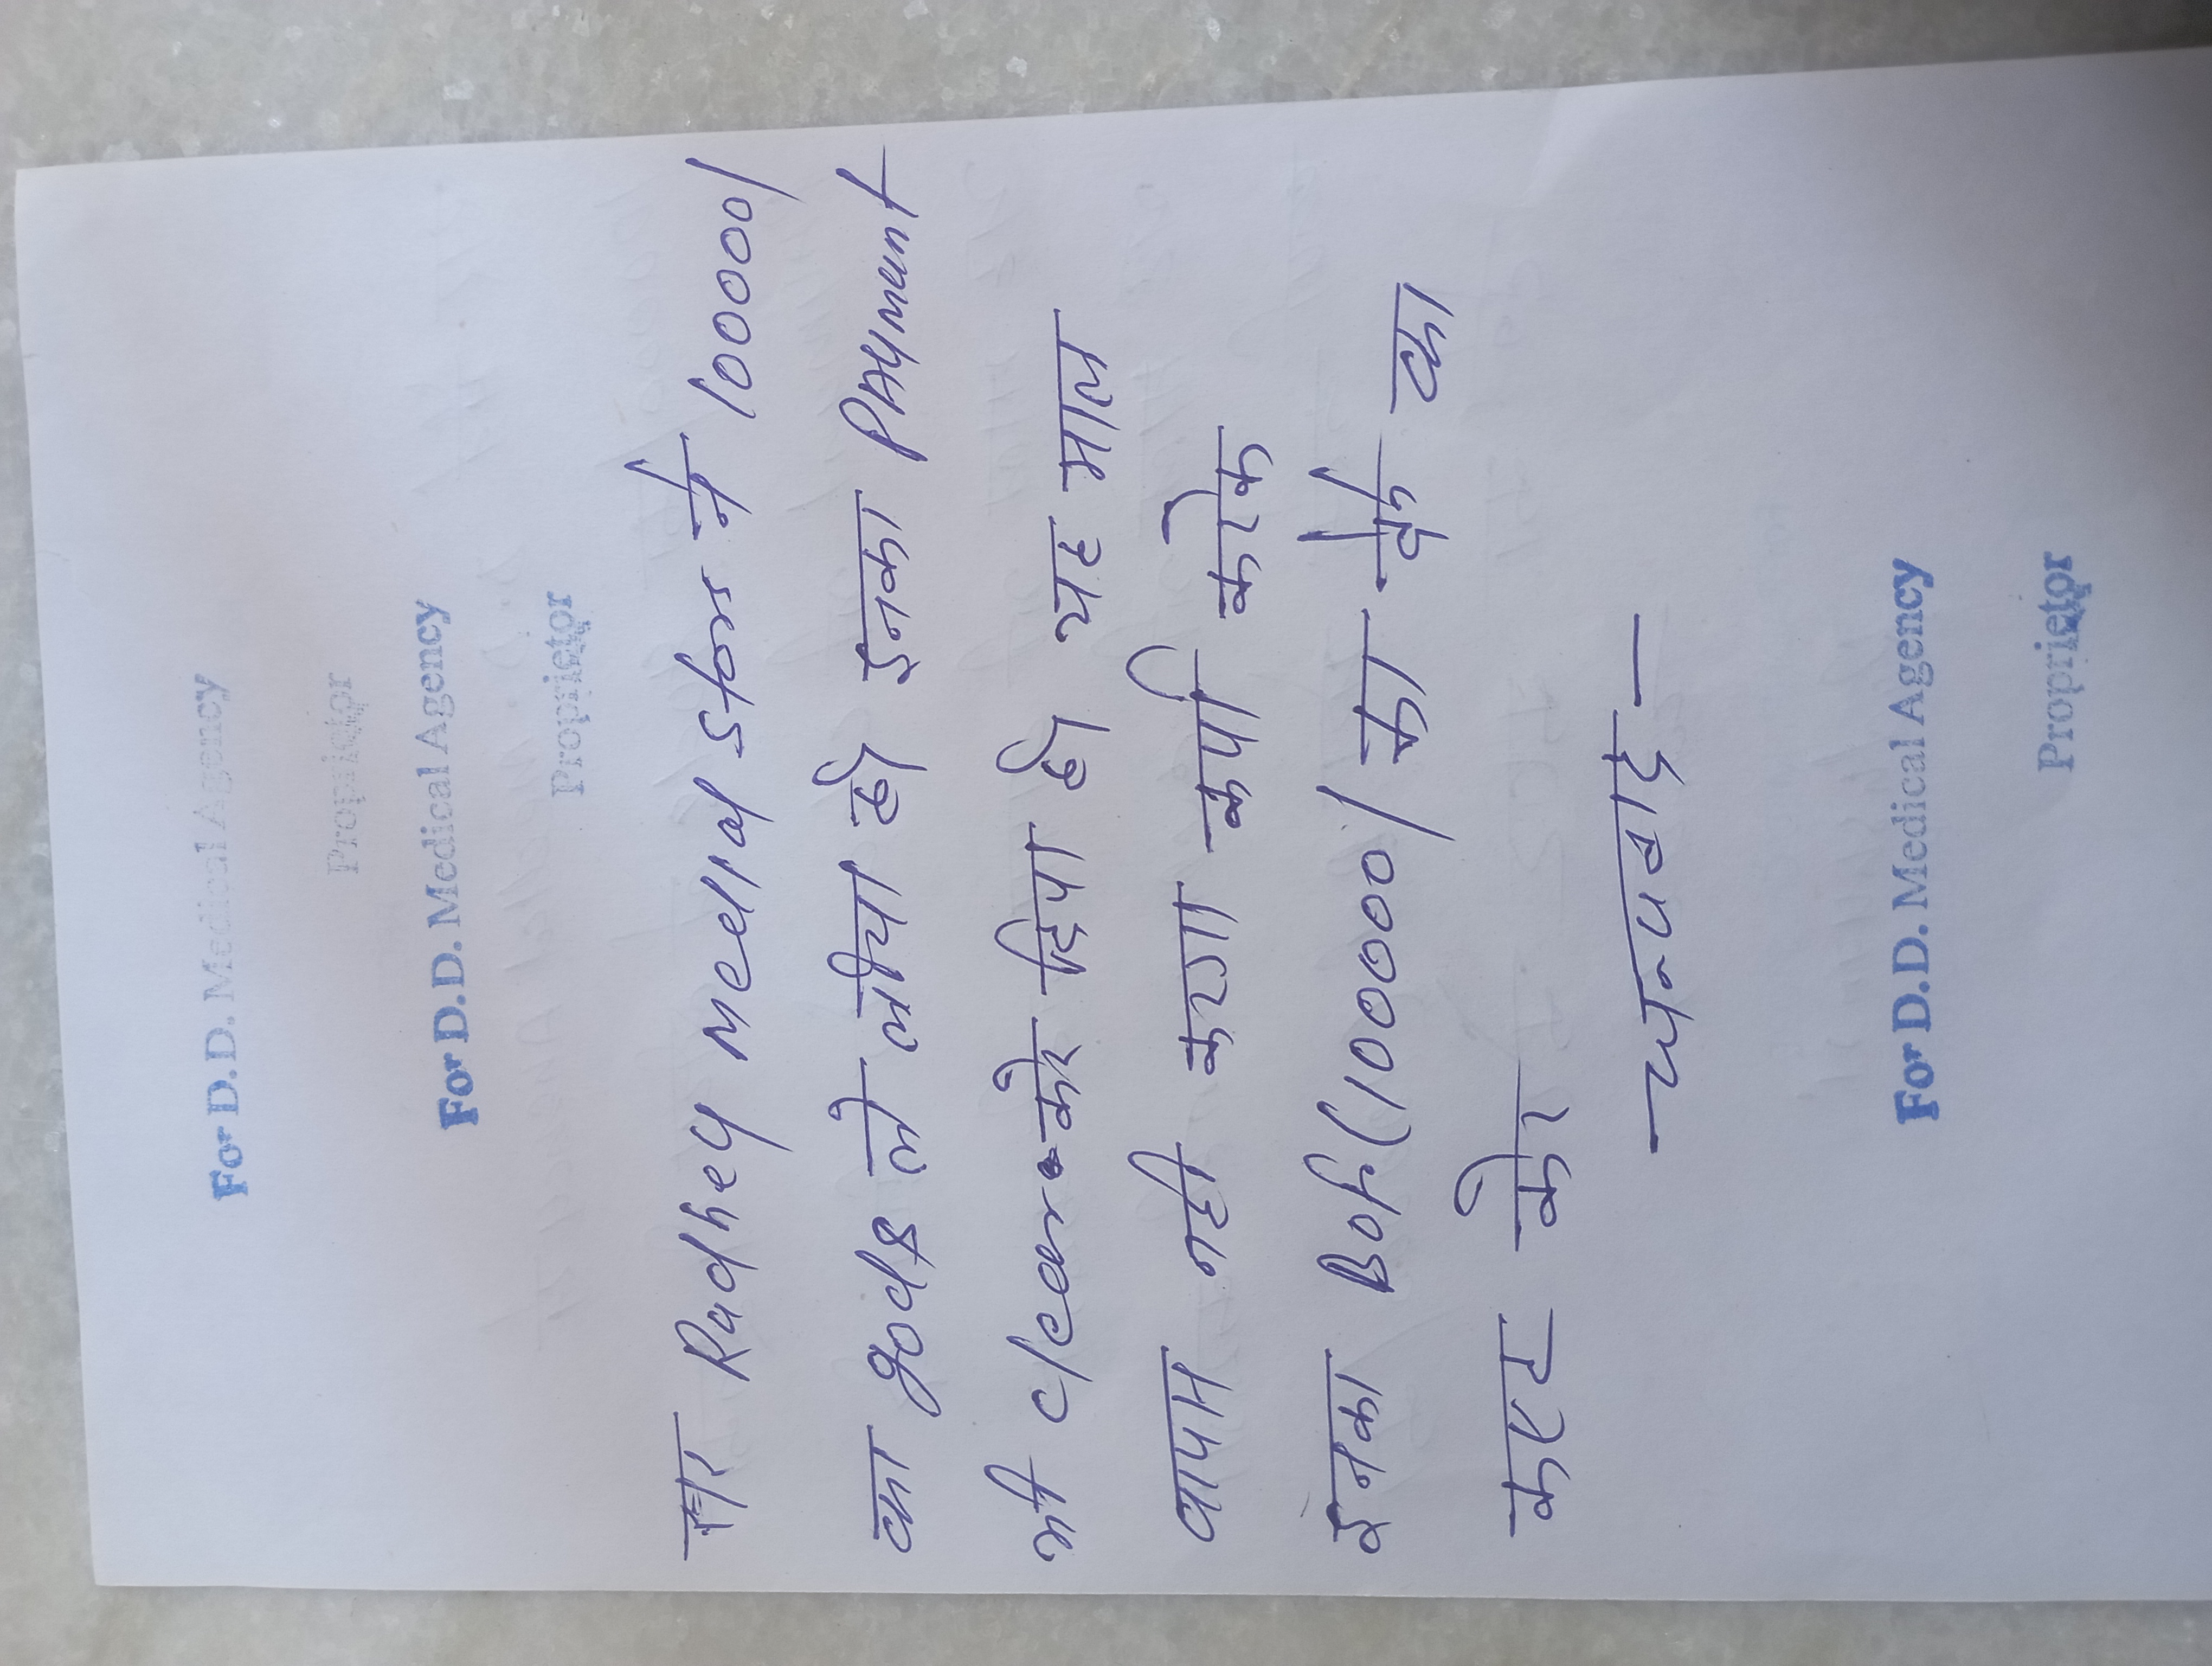 For D.D. Medical Agency
Proprietor
For D.D. Medical Agency
Proprietor
सर Radhey Medical Store ने 10000/
का gods ले लीया है। इनका PAYment
भी clear करे दिया है। यह माल
वापस नही करगा कपी करेक
इनका Bok (10000/ का चैक का
कस्ट करे
— धन्यवाद —
For D.D. Medical Agency
Proprietor